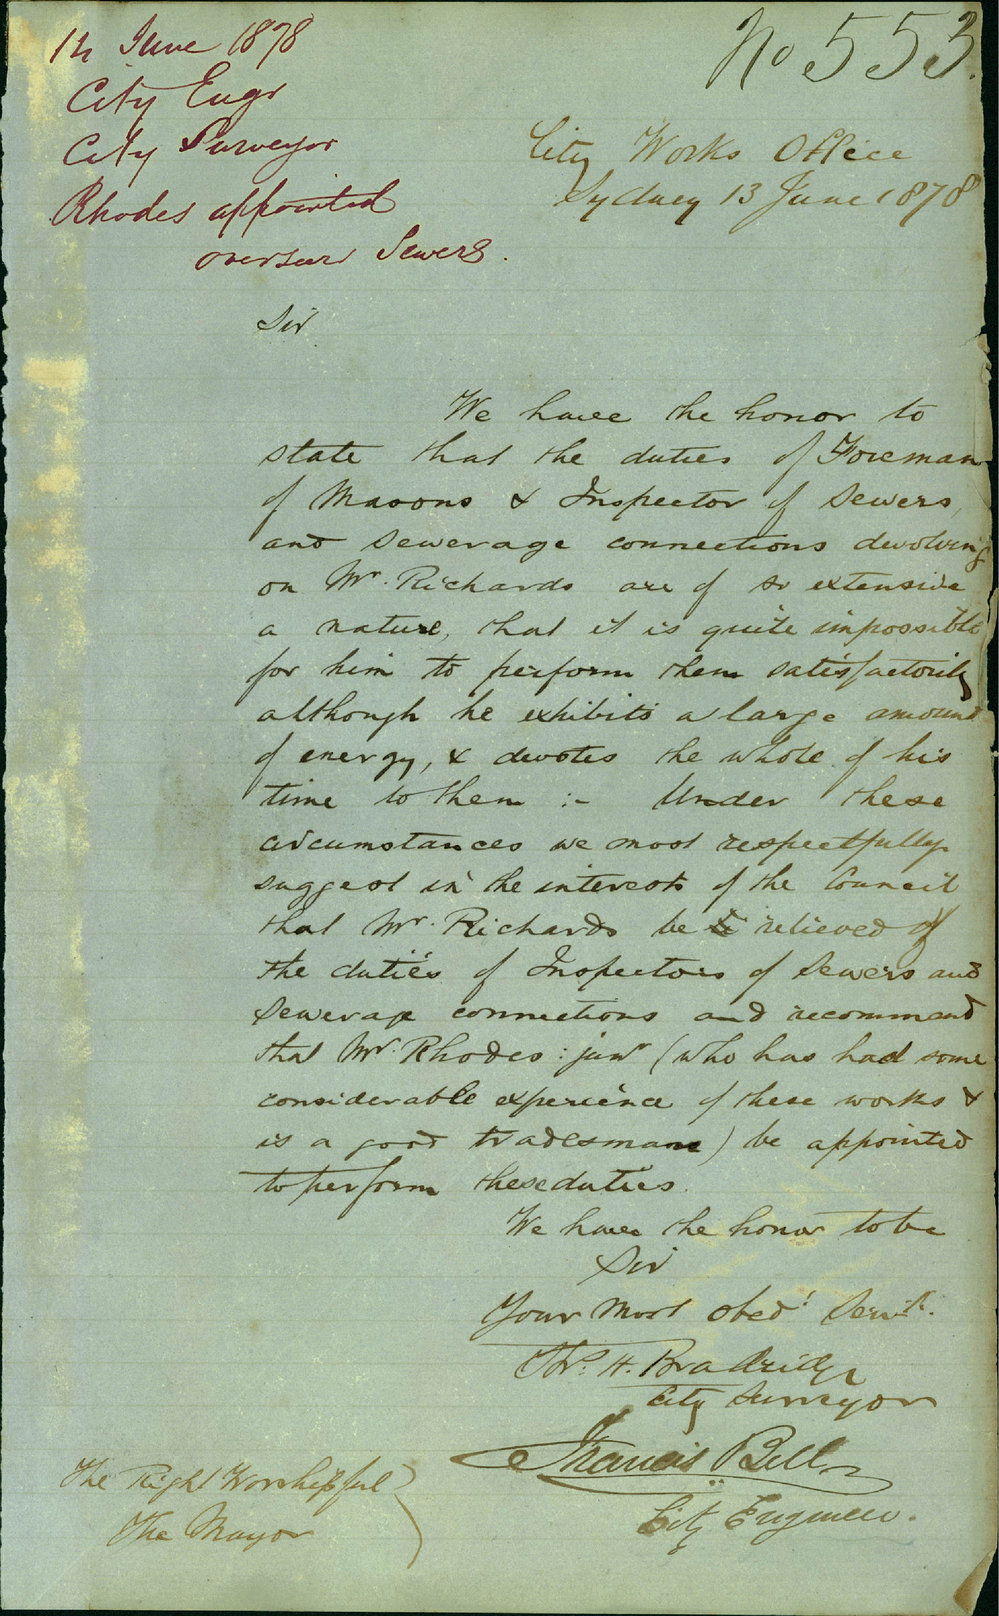 14 June 1878
City Engr
City Surveyor
Rhodes appointed
overseer Sewers.
No 553.
City Works Office
Sydney 13 June 1878
Sir
We have the honor to
state that the duties of Foreman
of Masons & Inspector of Sewers,
and Sewerage connections devolving
on Mr. Richards are of so extensive
a nature, that it is quite impossible
for him to perform them satisfactorily
although he exhibits a large amount
of energy, & devotes the whole of his
time to them :- Under these
circumstances we most respectfully
suggest in the interests of the Council
that Mr. Richards be relieved of
the duties of Inspectors of Sewers and
Sewerage connections and recommend
that Mr. Rhodes : junr (who has had some
considerable experience of these works &
is a good tradesman) be appointed
to perform these duties.
We have the honor to be
Sir
Your Most Obedt Servts.
Thos. H. Bradridge
City Surveyor
Francis Bell
City Engineer.
The Right Worshipful
The Mayor